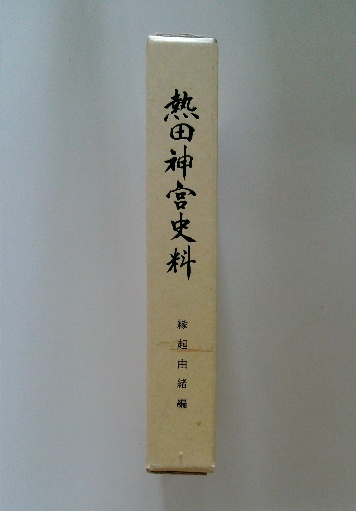 熱田神宮史料
縁起由緒編